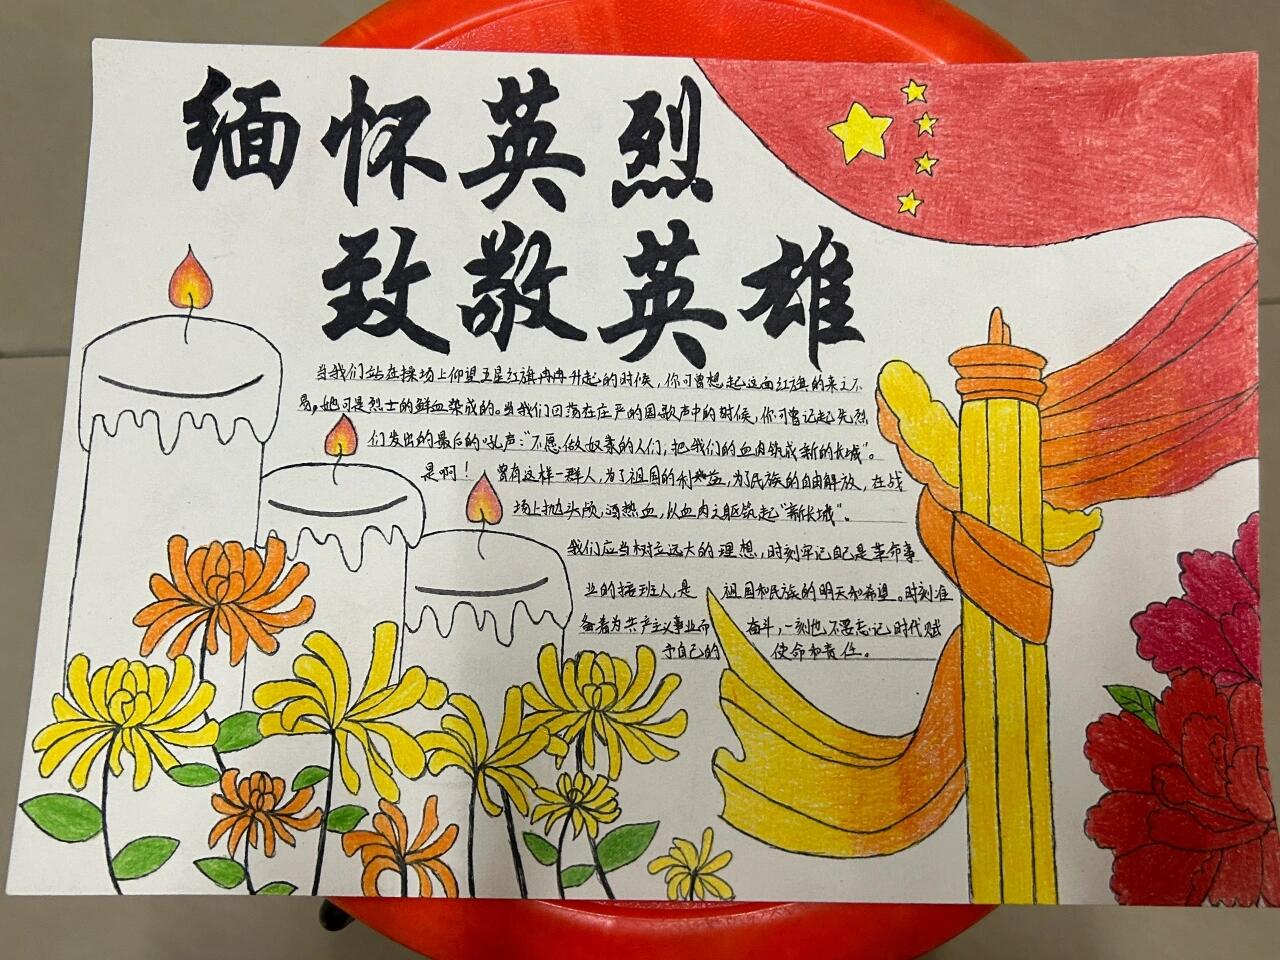 缅怀英烈
致敬英雄
当我们站在操场上仰望五星红旗冉冉升起的时候，你可曾想起这面红旗的来之不
易，她可是烈士的鲜血染成的。当我们回荡在庄严的国歌声中的时候，你可曾记起先烈
们发出的最后的吼声："不愿做奴隶的人们，把我们的血肉筑成新的长城"。
是啊！曾有这样一群人，为了祖国的利益，为了民族的自由解放，在战
场上抛头颅，洒热血，以血肉之躯筑起"新长城"。
我们应当树立远大的理想，时刻牢记自己是革命事
业的接班人，是祖国和民族的明天和希望。时刻准
备着为共产主义事业而奋斗，一刻也不要忘记时代赋
予自己的使命和责任。